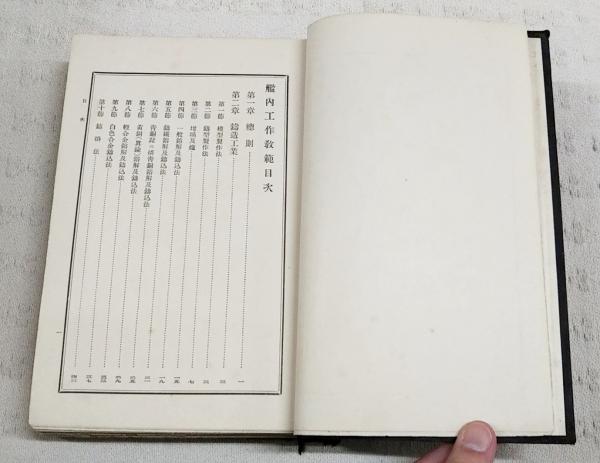 艦内工作教範目次
第一章 總則 一
第二章 鑄造工業
第一節 模型製作法 三
第二節 鑄型製作法 三
第三節 坩堝及爐 七
第四節 一般鎔解及鑄込法 一五
第五節 鑄鐵鎔解及鑄込法 一九
第六節 青銅鎔解及鑄込法
第七節 黃銅(眞鍮)鎔解及鑄込法
第八節 輕合金鎔解及鑄込法
第九節 白色合金鑄込法
第十節 鑄掛法
目次
一